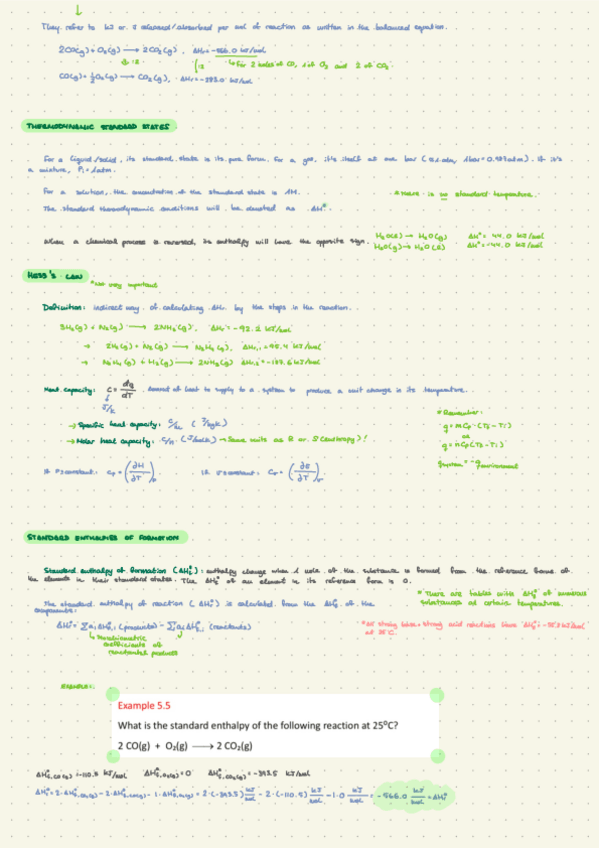 They refer to kJ or J released/absorbed per mol of reaction as written in the balanced equation.
2CO(g) + O₂(g) ⟶ 2CO₂(g), ΔHr = -566.0 kJ/mol
↳ for 2 moles of CO, 1 of O₂ and 2 of CO₂
CO(g) + ½O₂(g) ⟶ CO₂(g), ΔHr = -283.0 kJ/mol
THERMODYNAMIC STANDARD STATES
For a liquid/solid, its standard state is its pure form. For a gas, it's itself at one bar (≈1 atm, 1bar = 0.987atm). If it's
a mixture, Pi = 1atm.
For a solution, the concentration of the standard state is 1M.
* There is no standard temperature.
The standard thermodynamic conditions will be denoted as ΔH°.
When a chemical process is reversed, its enthalpy will have the opposite sign.
H₂O(l) → H₂O(g) ΔH° = 44.0 kJ/mol
H₂O(g) → H₂O(l) ΔH° = -44.0 kJ/mol
HESS'S LAW
* Not very important
Definition: indirect way of calculating ΔHr by the steps in the reaction.
3H₂(g) + N₂(g) ⟶ 2NH₃(g), ΔHr = -92.2 kJ/mol
→ 2H₂(g) + N₂(g) ⟶ N₂H₄(g), ΔHr,1 = 95.4 kJ/mol
→ N₂H₄(g) + H₂(g) ⟶ 2NH₃(g) ΔHr,2 = -187.6 kJ/mol
Heat capacity: C = dq/dT, amount of heat to supply to a system to produce a unit change in its temperature.
J/K
→ Specific heat capacity: C/m (J/kgK)
→ Molar heat capacity: C/n (J/molK) → Same units as R or S (entropy)!
* Remember:
q = mCp·(T₂ - T₁)
or
q = nCp(T₂ - T₁)
qsystem = -qenvironment
If P constant: Cp = (∂H/∂T)p If V constant: Cv = (∂E/∂T)v
STANDARD ENTHALPIES OF FORMATION
Standard enthalpy of formation (ΔHf°): enthalpy change when 1 mole of the substance is formed from the reference forms of
the elements in their standard states. The ΔHf° of an element in its reference form is 0.
The standard enthalpy of reaction (ΔHr°) is calculated from the ΔHf° of the
components:
* There are tables with ΔHf° of numerous
substances at certain temperatures.
ΔHr° = Σ ai ΔHf,i° (products) - Σ ai ΔHf,i° (reactants)
↳ stoichiometric
coefficients of
reactants/products
* All strong base + strong acid reactions have
at 25°C.
EXAMPLE:
Example 5.5
What is the standard enthalpy of the following reaction at 25°C?
2 CO(g) + O₂(g) ⟶ 2 CO₂(g)
ΔHf,CO(g)° = -110.5 kJ/mol ΔHf,O₂(g)° = 0 ΔHf,CO₂(g)° = -393.5 kJ/mol
ΔHr° = 2·ΔHf,CO₂(g)° - 2·ΔHf,CO(g)° - 1·ΔHf,O₂(g)° = 2·(-393.5) kJ/mol - 2·(-110.5) kJ/mol - 1·0 kJ/mol = -566.0 kJ/mol = ΔHr°